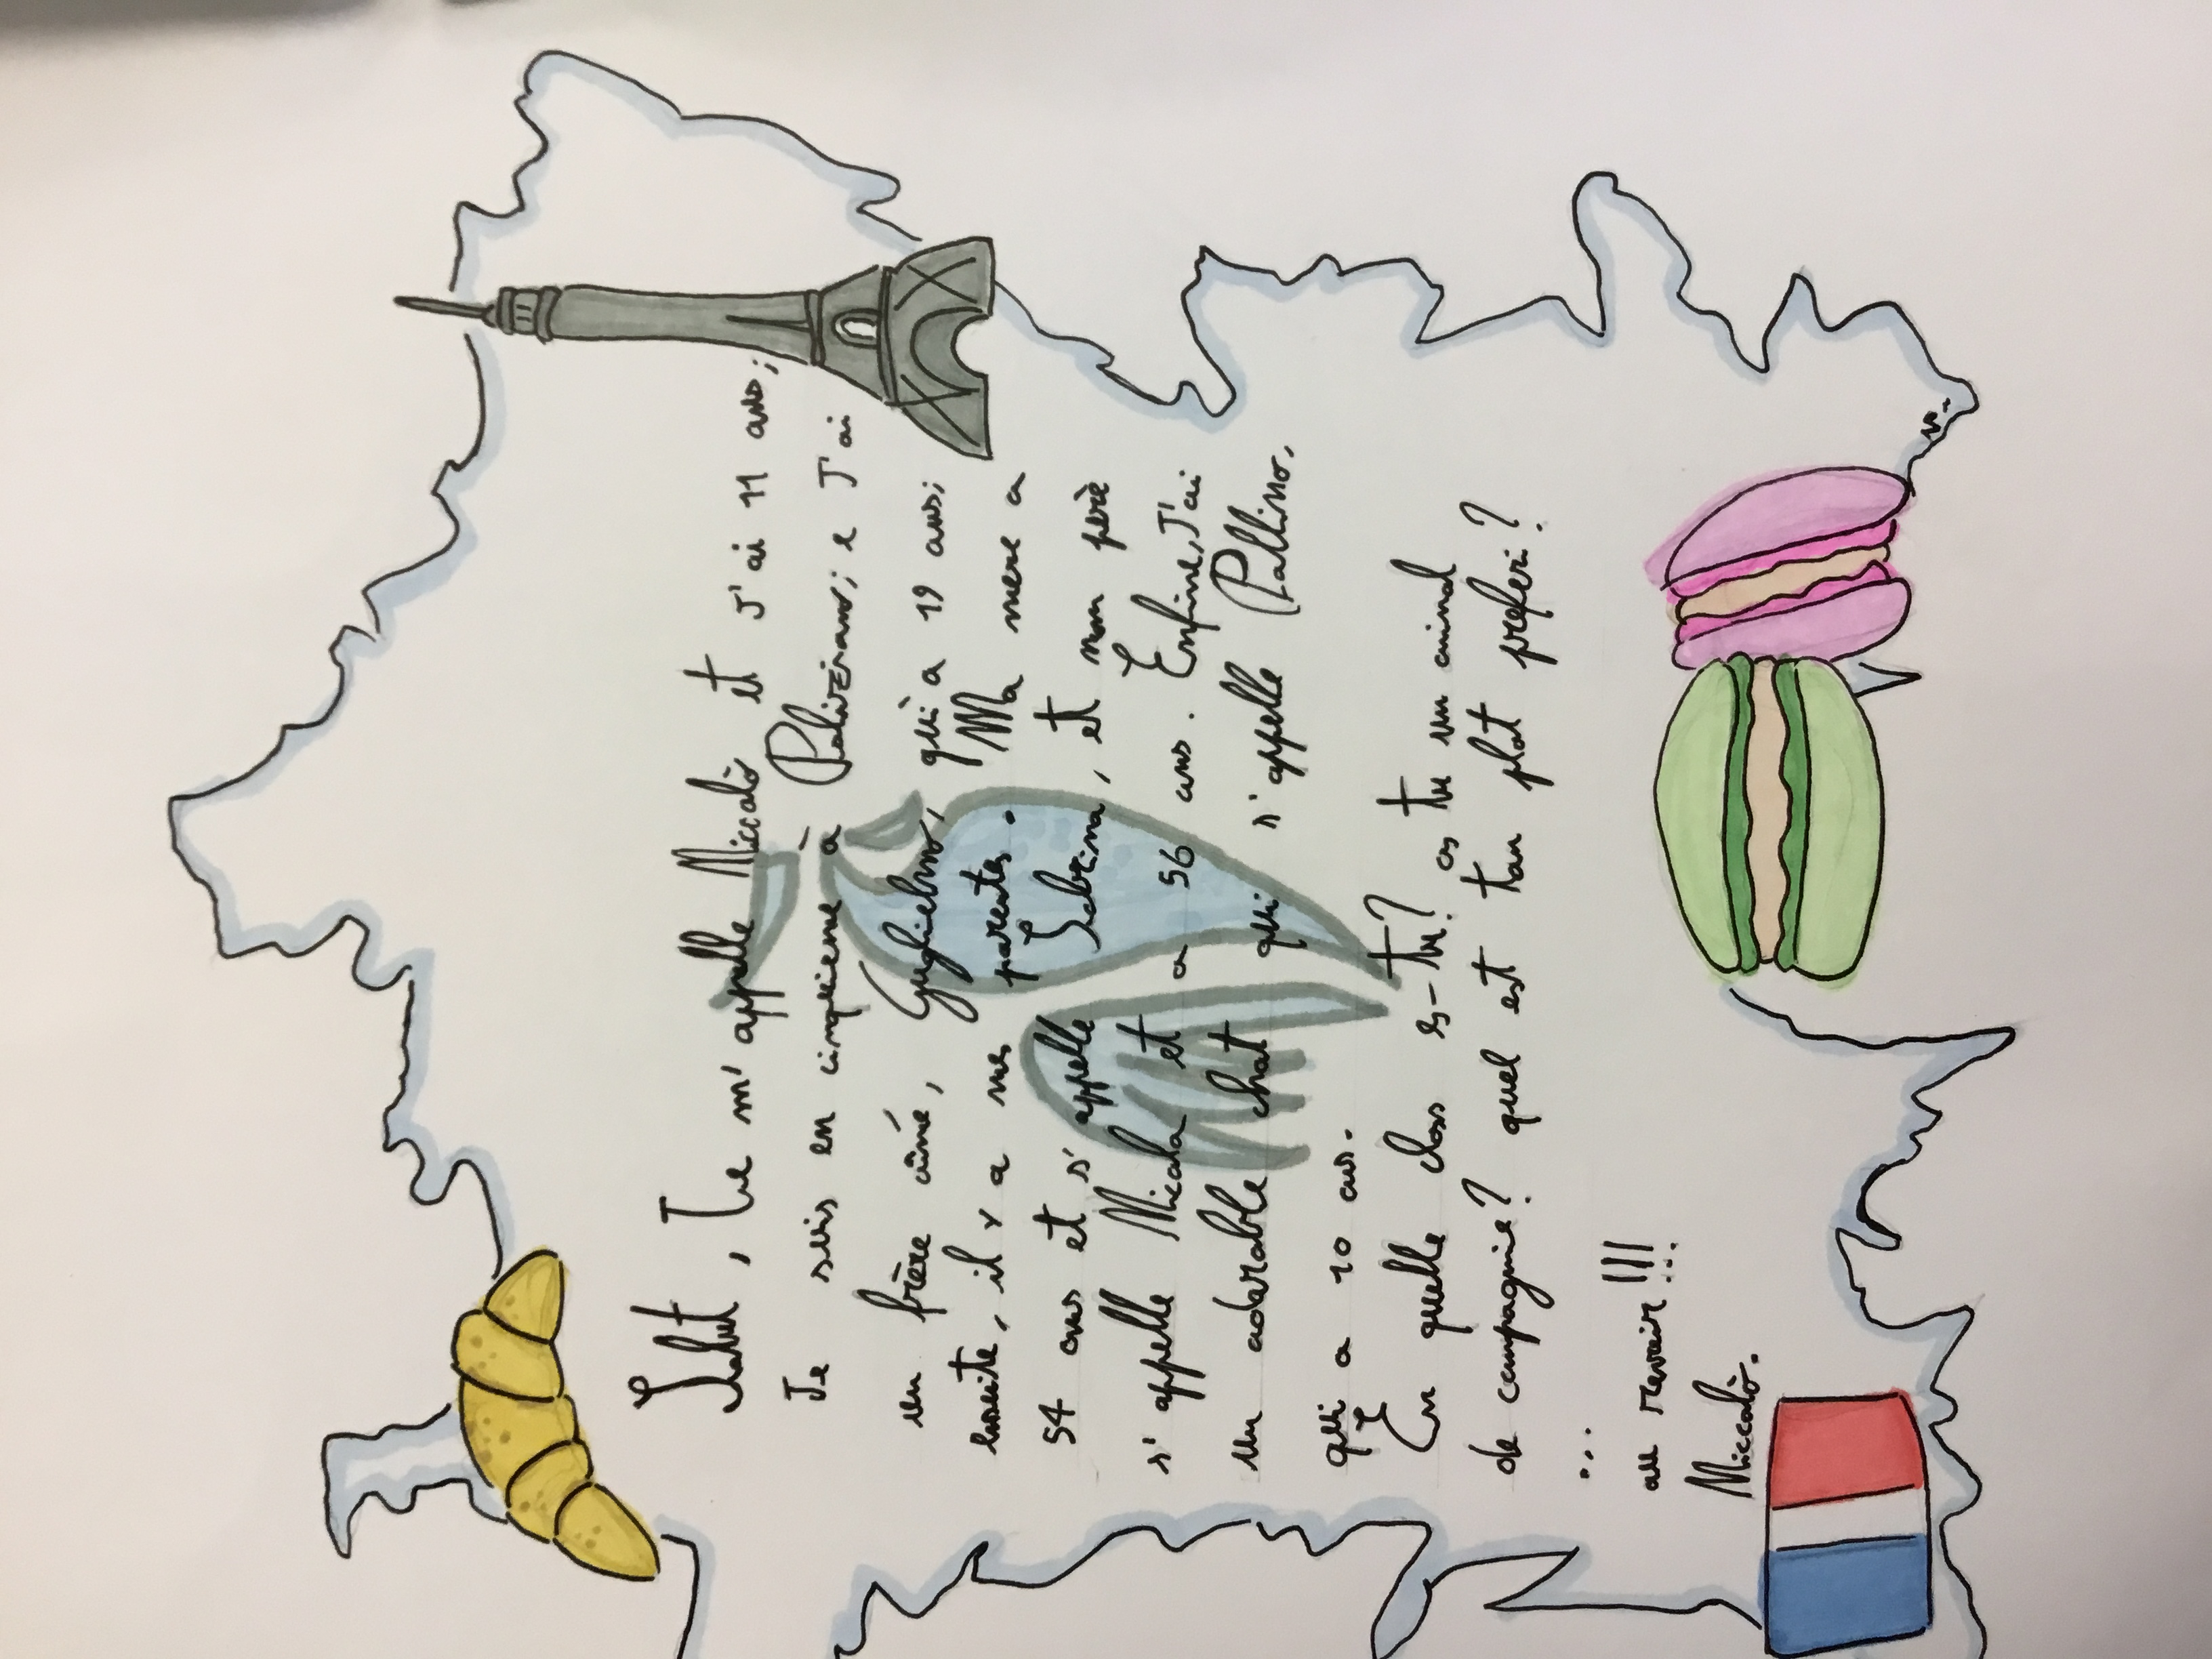 Salut, Je m'appelle Niccolò et J'ai 11 ans;
Je suis en cinquieme a Palizzano; e J'ai
un frère aîné, Guglielmo, qui a 19 ans;
ensuite, il y a mes parents. Ma mere a
54 ans et s'appelle Sabrina, et mon perè
s'appelle Nicola et a 56 ans. Enfine, J'ai
un adorable chat qui s'appelle Pallino,
qui a 10 ans.
En quelle class es-tu? as tu un animal
de compagnie? quel est ton plat preferi?
...
au revoir!!!
Niccolò.